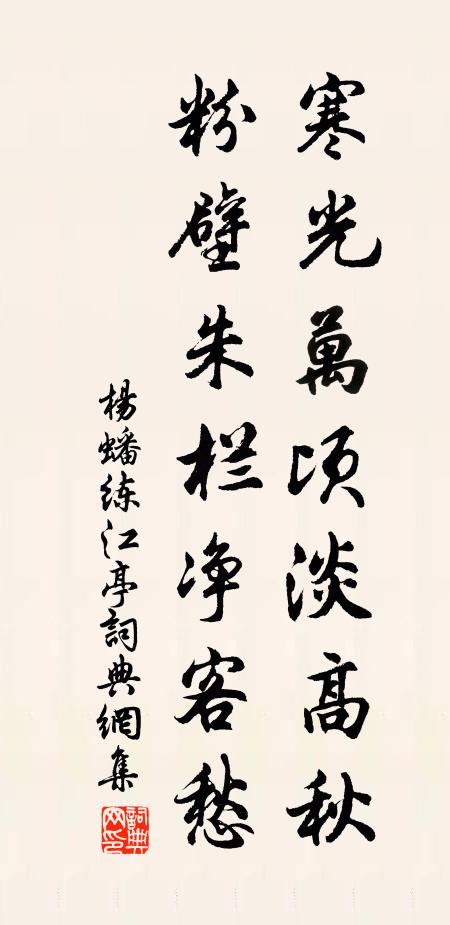 寒光萬頃淡高秋
粉壁朱栏净客愁
楊蟠练江亭詞典網集
詞典网印